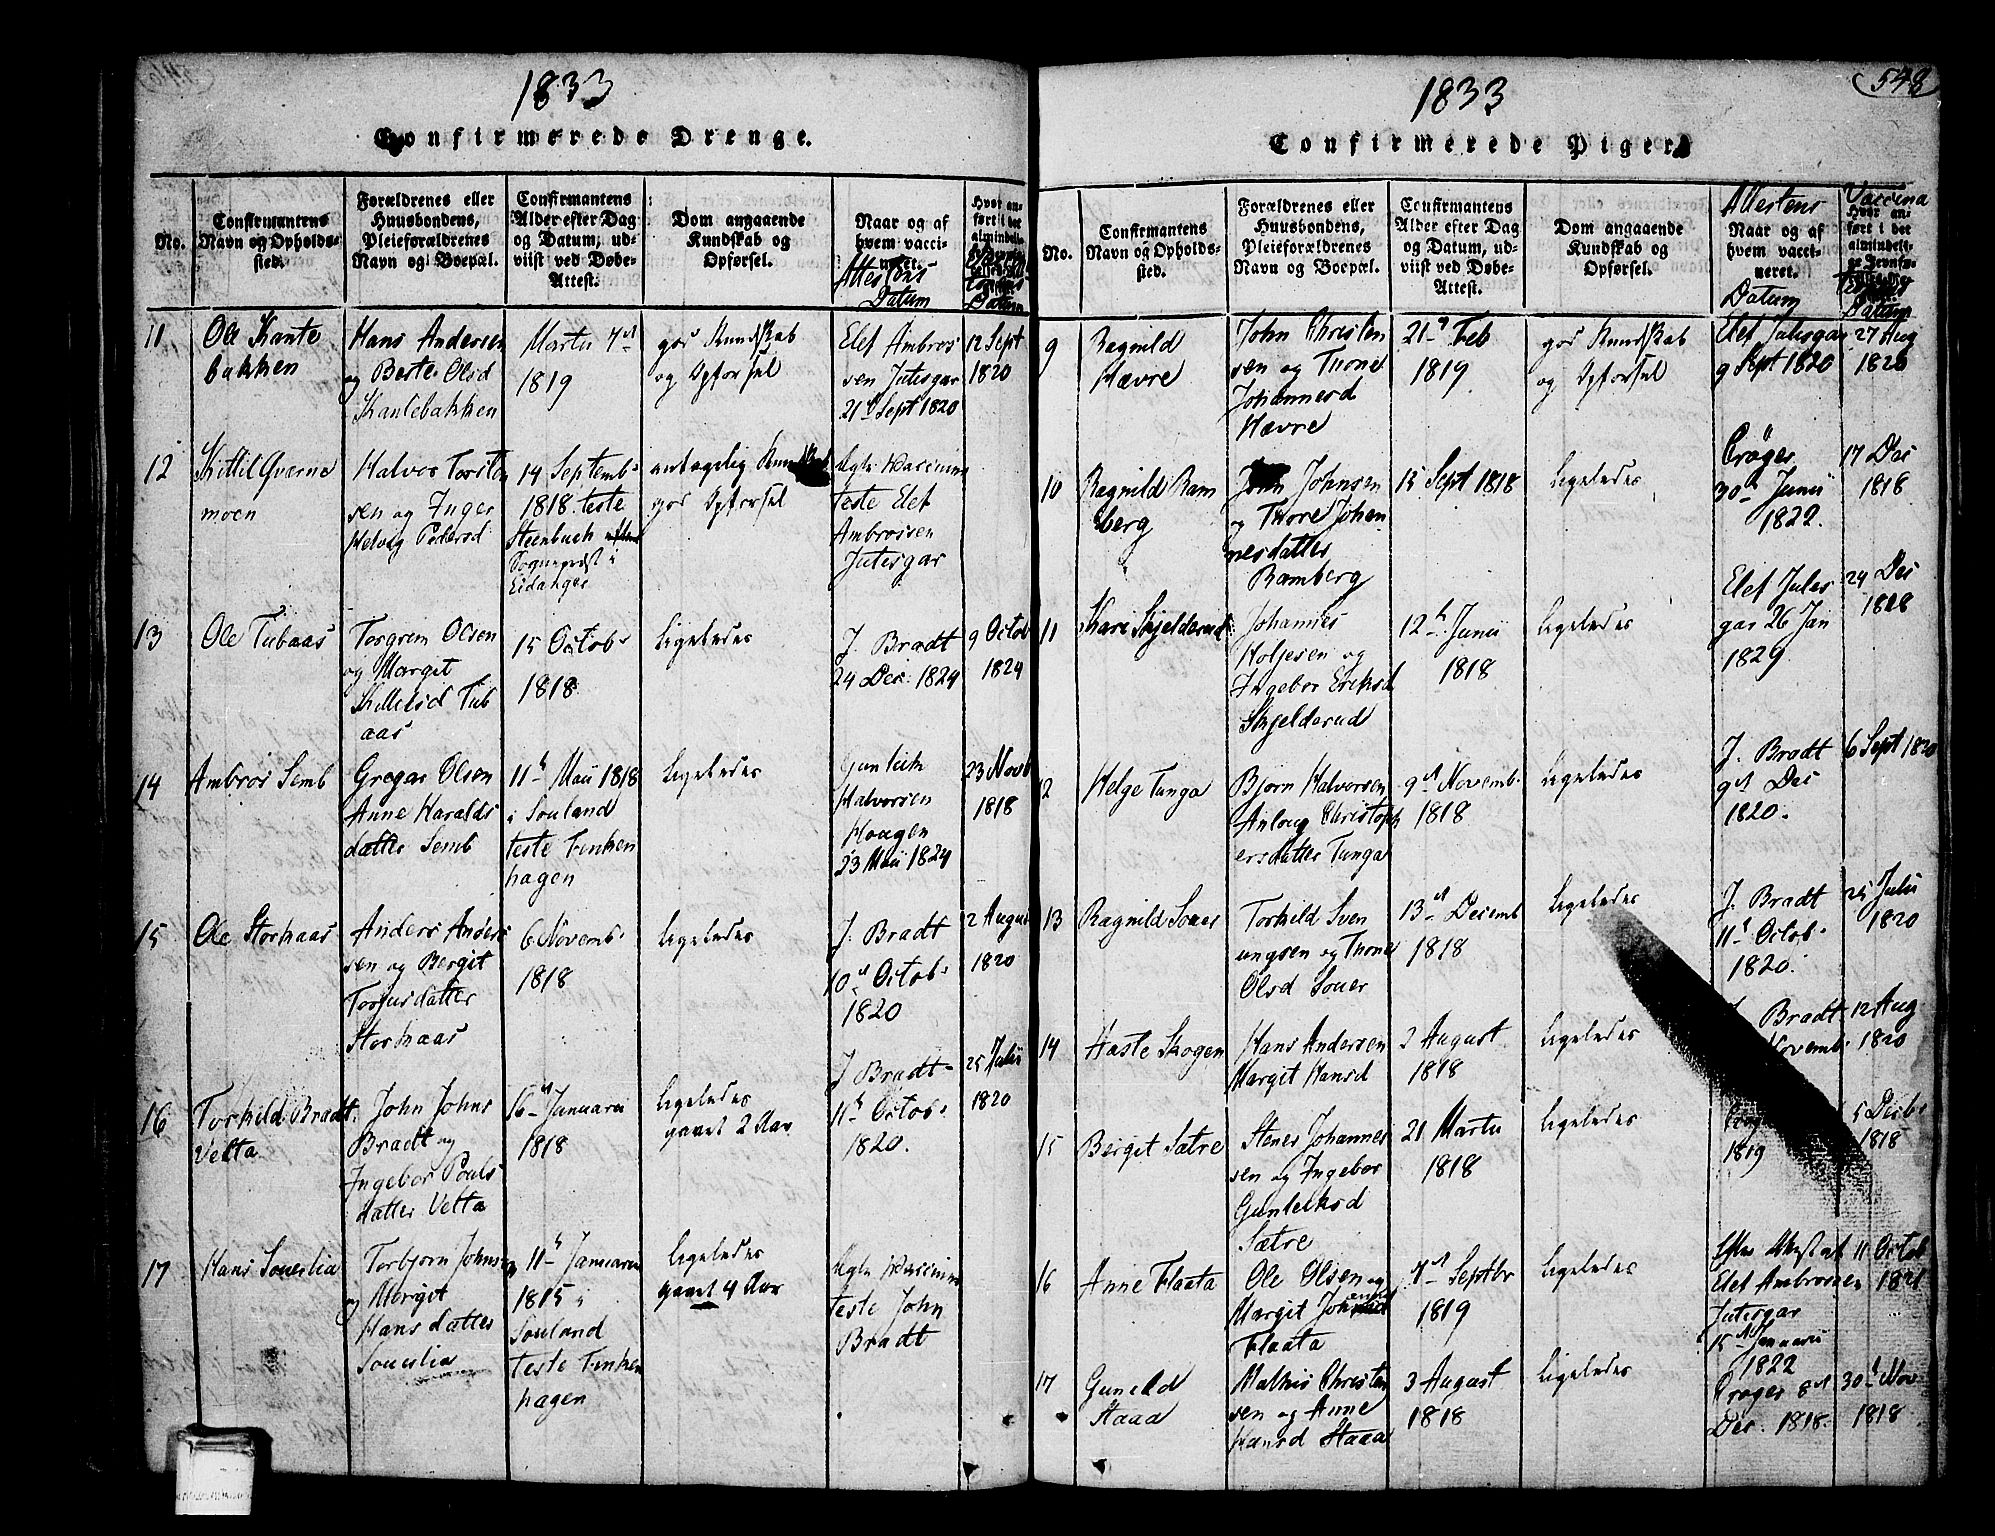 1833
Confirmerede Drenge.
No.
Confirmantens
Navn og Opholds-
sted.
Forældrenes eller
Huusbondens,
Pleieforældrenes
Navn og Boepæl.
Confirmantens
Alder efter Dag
og Datum, ud-
viist ved Døbe-
Attest.
Dom angaaende
Kundskab og
Opførsel.
Naar og af
hvem vacci-
neret.
Attestens
Datum
Hvor an-
ført i det
almindeli-
Datum
11
Ole Kante
bakken
Hans Andersen
og Berte Olsd
Kantebakken
Martii 7de
1819
god Kundskab
og Opforsel
Elef Ambros
sen Jutisgar
21de Sept 1820
12 Sept
1820
12
Kittil Qværne
moen
Halvor Torsten
sen og Inger
Helvig Pedersd
14 Septemb.
1818. teste
Steenbuch
Sognepræst i
Eidanger
antagelig Kundskab
god Opforsel
teste Elef
Ambrossen
Jutisgar
13
Ole Tubaas
Torgrim Olsen
og Margit
Kittelsd Tub
aas
15 Octob.
1818
ligeledes
J. Bradt
24 Dec. 1824
9 Octob
1824
14
Ambros Semb
Gregar Olsen
Anne Haralds
datter Semb
11te Maii 1818
i Souland
teste Finken
hagen
ligeledes
Gunleik
Halvorsen
Hougen
23 Maii 1824
23 Novb
1818
15
Ole Storhaas
Anders Anders
sen og Bergit
Torjusdatter
Storhaas
6 Novemb.
1818
ligeledes
J. Bradt
10de Octob.
1820
2 August
1820
16
Torkild Bradt
Vetta
John Johns
Bradt og
Ingebor Pouls
datter Vetta
6te Januarii
1818
ligeledes
gaaet 2 Aar
J Bradt
11te Octob.
1820.
25 Julii
1820
17
Hans Souerlia
Torbjorn Johnsen
og Margit
Hansdatter
Souerlia
11te Januarii
1815 i
Souland
teste Finken
hagen
ligeledes
gaaet 4 Aar
teste John
Bradt
548
1833
Confirmerede Piger.
No.
Confirmantens
Navn og Opholds-
sted.
Forældrenes eller
Huusbondens,
Pleieforældrenes
Navn og Boepæl.
Confirmantens
Alder efter Dag
og Datum, ud-
viist ved Døbe-
Attest.
Dom angaaende
Kundskab og
Opførsel.
Attestens
Naar og af
hvem vacci-
neret.
Datum
Vaccina
Hvor an-
ført i det
almindeli-
ge Jevnfø-
Datum
9
Ragnild
Hævre
John Christen
sen og Thone
Johannesd
Hævre
21de Feb
1819
god Kundskab
og Opforsel
Elef Jutisgar
9 Sept 1820
27 Aug
1820
10
Ragnild Ram
berg
John Johnsen
og Thore Johan
nesdatter
Ramberg
15 Sept 1818
ligeledes
Crøger
30te Junii
1822.
17 Dec
1818
11
Kari Skjelderud
Johannes
Holjesen og
Ingebor Eriksd
Skjelderud
12te Junii
1818
ligeledes
Elef Jutis
gar 26 Jan
1829
24 Dec
1828
12
Helge Tunga
Bjorn Halvorsen
Anloug Christoph
ersdatter Tunga
9de Novemb.
1818
ligeledes
J. Bradt
9de Dec
1820.
6 Sept 1820
13
Ragnild Souer
Torkild Sven
ungsen og Thone
Olsd Souer
13de Decemb
1818
ligeledes
J. Bradt
11te Octob.
1820.
25 Julii
1820
14
Haste Skogen
Hans Andersen
Margit Hansd
2 August
1818
ligeledes
J Bradt
Novemb.
12 Aug
1820
15
Bergit Sætre
Stener Johannes
sen og Ingebor
Gunleiksd
Sætre
21 Martii
1818
ligeledes
1819
5 Decb.
1818
16
Anne Flaata
Ole Olsen og
Margit Johannesd
Flaata
7de Septbr
1819
ligeledes
Elef Ambrossen
Jutisgar
15de Januarii
1822
11 Octob
1821
17
Gunild
Staaa
Mathis Christen
sen og Anne
Hansd Staaa
3 August
1818
ligeledes
Crøger 8de
Dec. 1818.
30te Nov.
1818